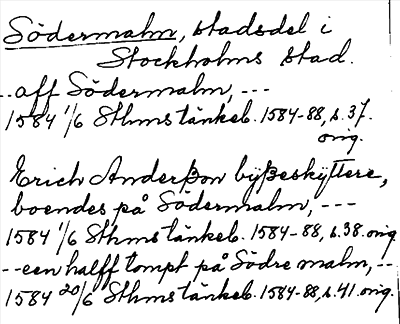 Södermalm, stadsdel i
Stockholms stad.
--aff Södermalm, ---
1584 1/6 Sthms tänkeb. 1584-88, s. 37.
orig.
Erich Anderßon byßeskyttere,
boendes på Södermalm, ---
1584 1/6 Sthms tänkeb. 1584-88, s. 38. orig
--een halff tompt på Södre malm, --
1584 20/6 Sthms tänkeb. 1584-88, s. 41. orig.